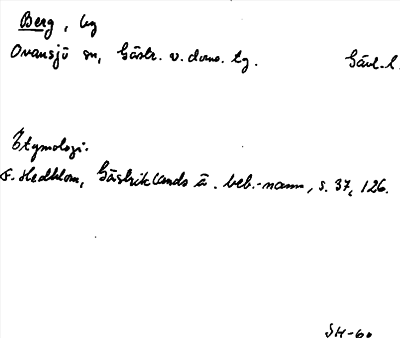 Berg, by
Ovansjö sn, Gästr. v. doms. tg. Gävl. l.
Etymologi:
F. Hedblom, Gästriklands ä. beb.-namn, s. 37, 126.
SH-60